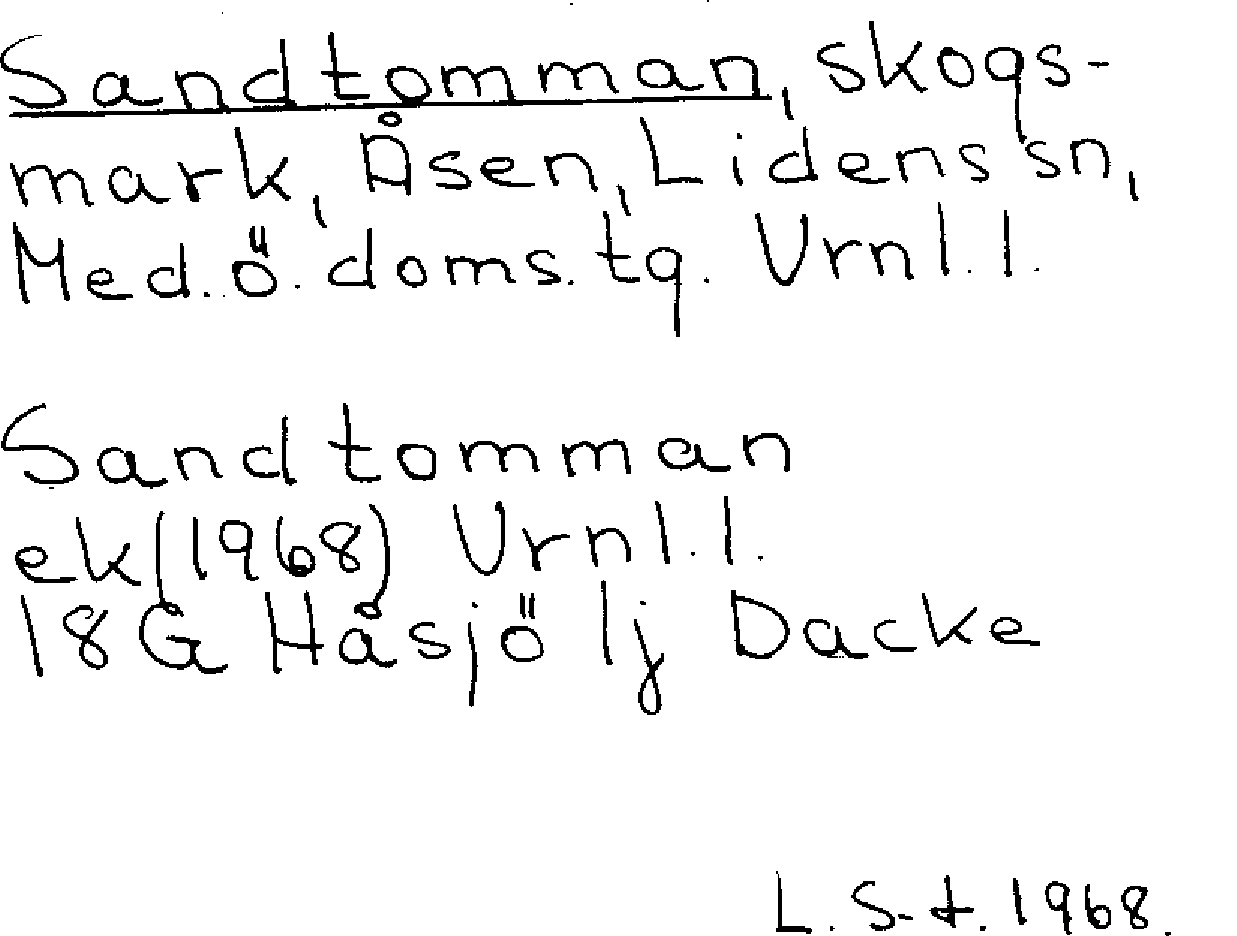 Sandtomman, skogs-
mark, Åsen, Lidens sn,
Med. ö. doms. tg. Vrnl. l.
Sandtomman
ek (1968) Vrnl. l.
18G Håsjö lj Dacke
L. S-t. 1968.